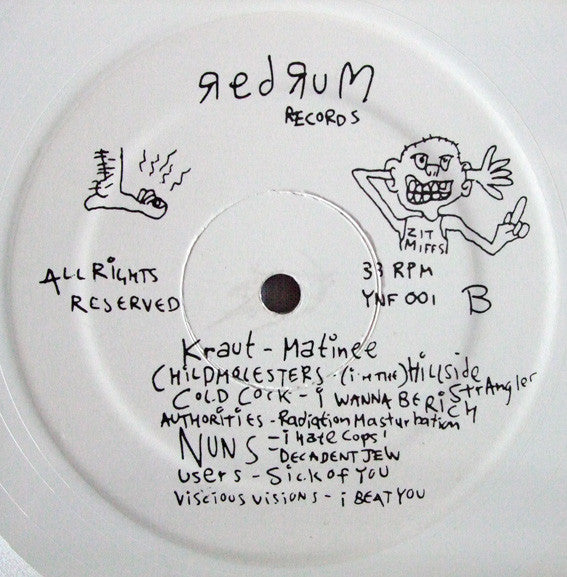 RedRuM
RECORDS
ZIT
MIFFS
ALL RiGHTS
RESERVED
33 RPM
YNF 001 B
Kraut - Matinee
CHILDMOLESTERS - (i'M THE) HillSide StrAngler
COLD COCK - i WANNA BE RiCH
AUTHORiTiES - Radiation Masturbation
NUNS - i HAte Cops'
- DECADENT JEW
USERS - Sick of You
ViSCiOUS ViSiONS - i BEAT YOU